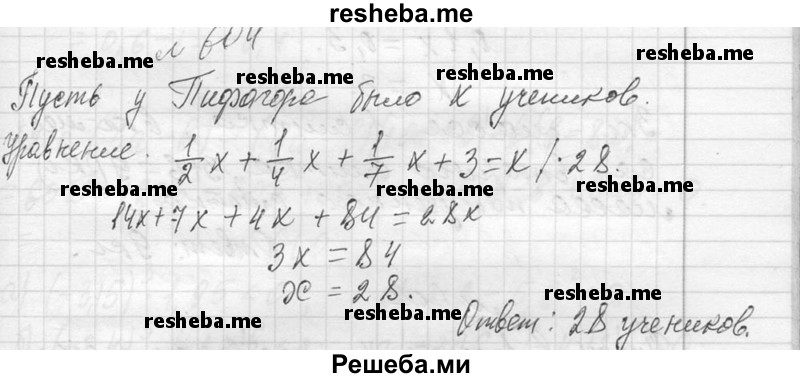 resheba.me
№ 604
Пусть у Пифагора было x учеников.
Уравнение. 1/2 x + 1/4 x + 1/7 x + 3 = x /· 28.
14x + 7x + 4x + 84 = 28x
3x = 84
x = 28.
Ответ: 28 учеников.
resheba.me
resheba.me
resheba.me
resheba.me
resheba.me
resheba.me
resheba.me
resheba.me
resheba.me
resheba.me
resheba.me
Решеба.ми